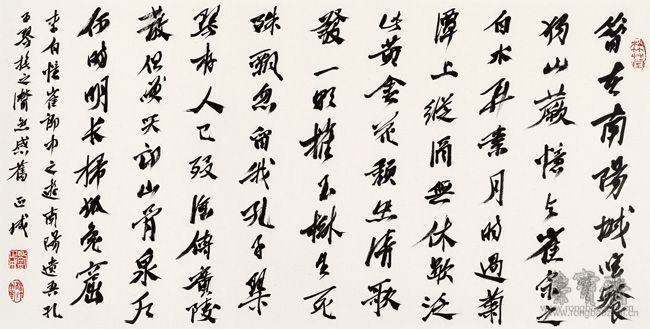 昔在南陽城唯餐
独山蕨憶与崔宗之
白水弄素月時過菊
潭上縱酒無休歇泛
此黄金花頹然清歌
發一朝摧玉樹生死
殊飄忽留我孔子琴
琴存人已殁誰傳廣陵
散但哭邙山骨泉户
何時明長掃狐兔窟
李白憶崔郎中之遊南陽遺吾孔
子琴撫之潸然感舊 正成